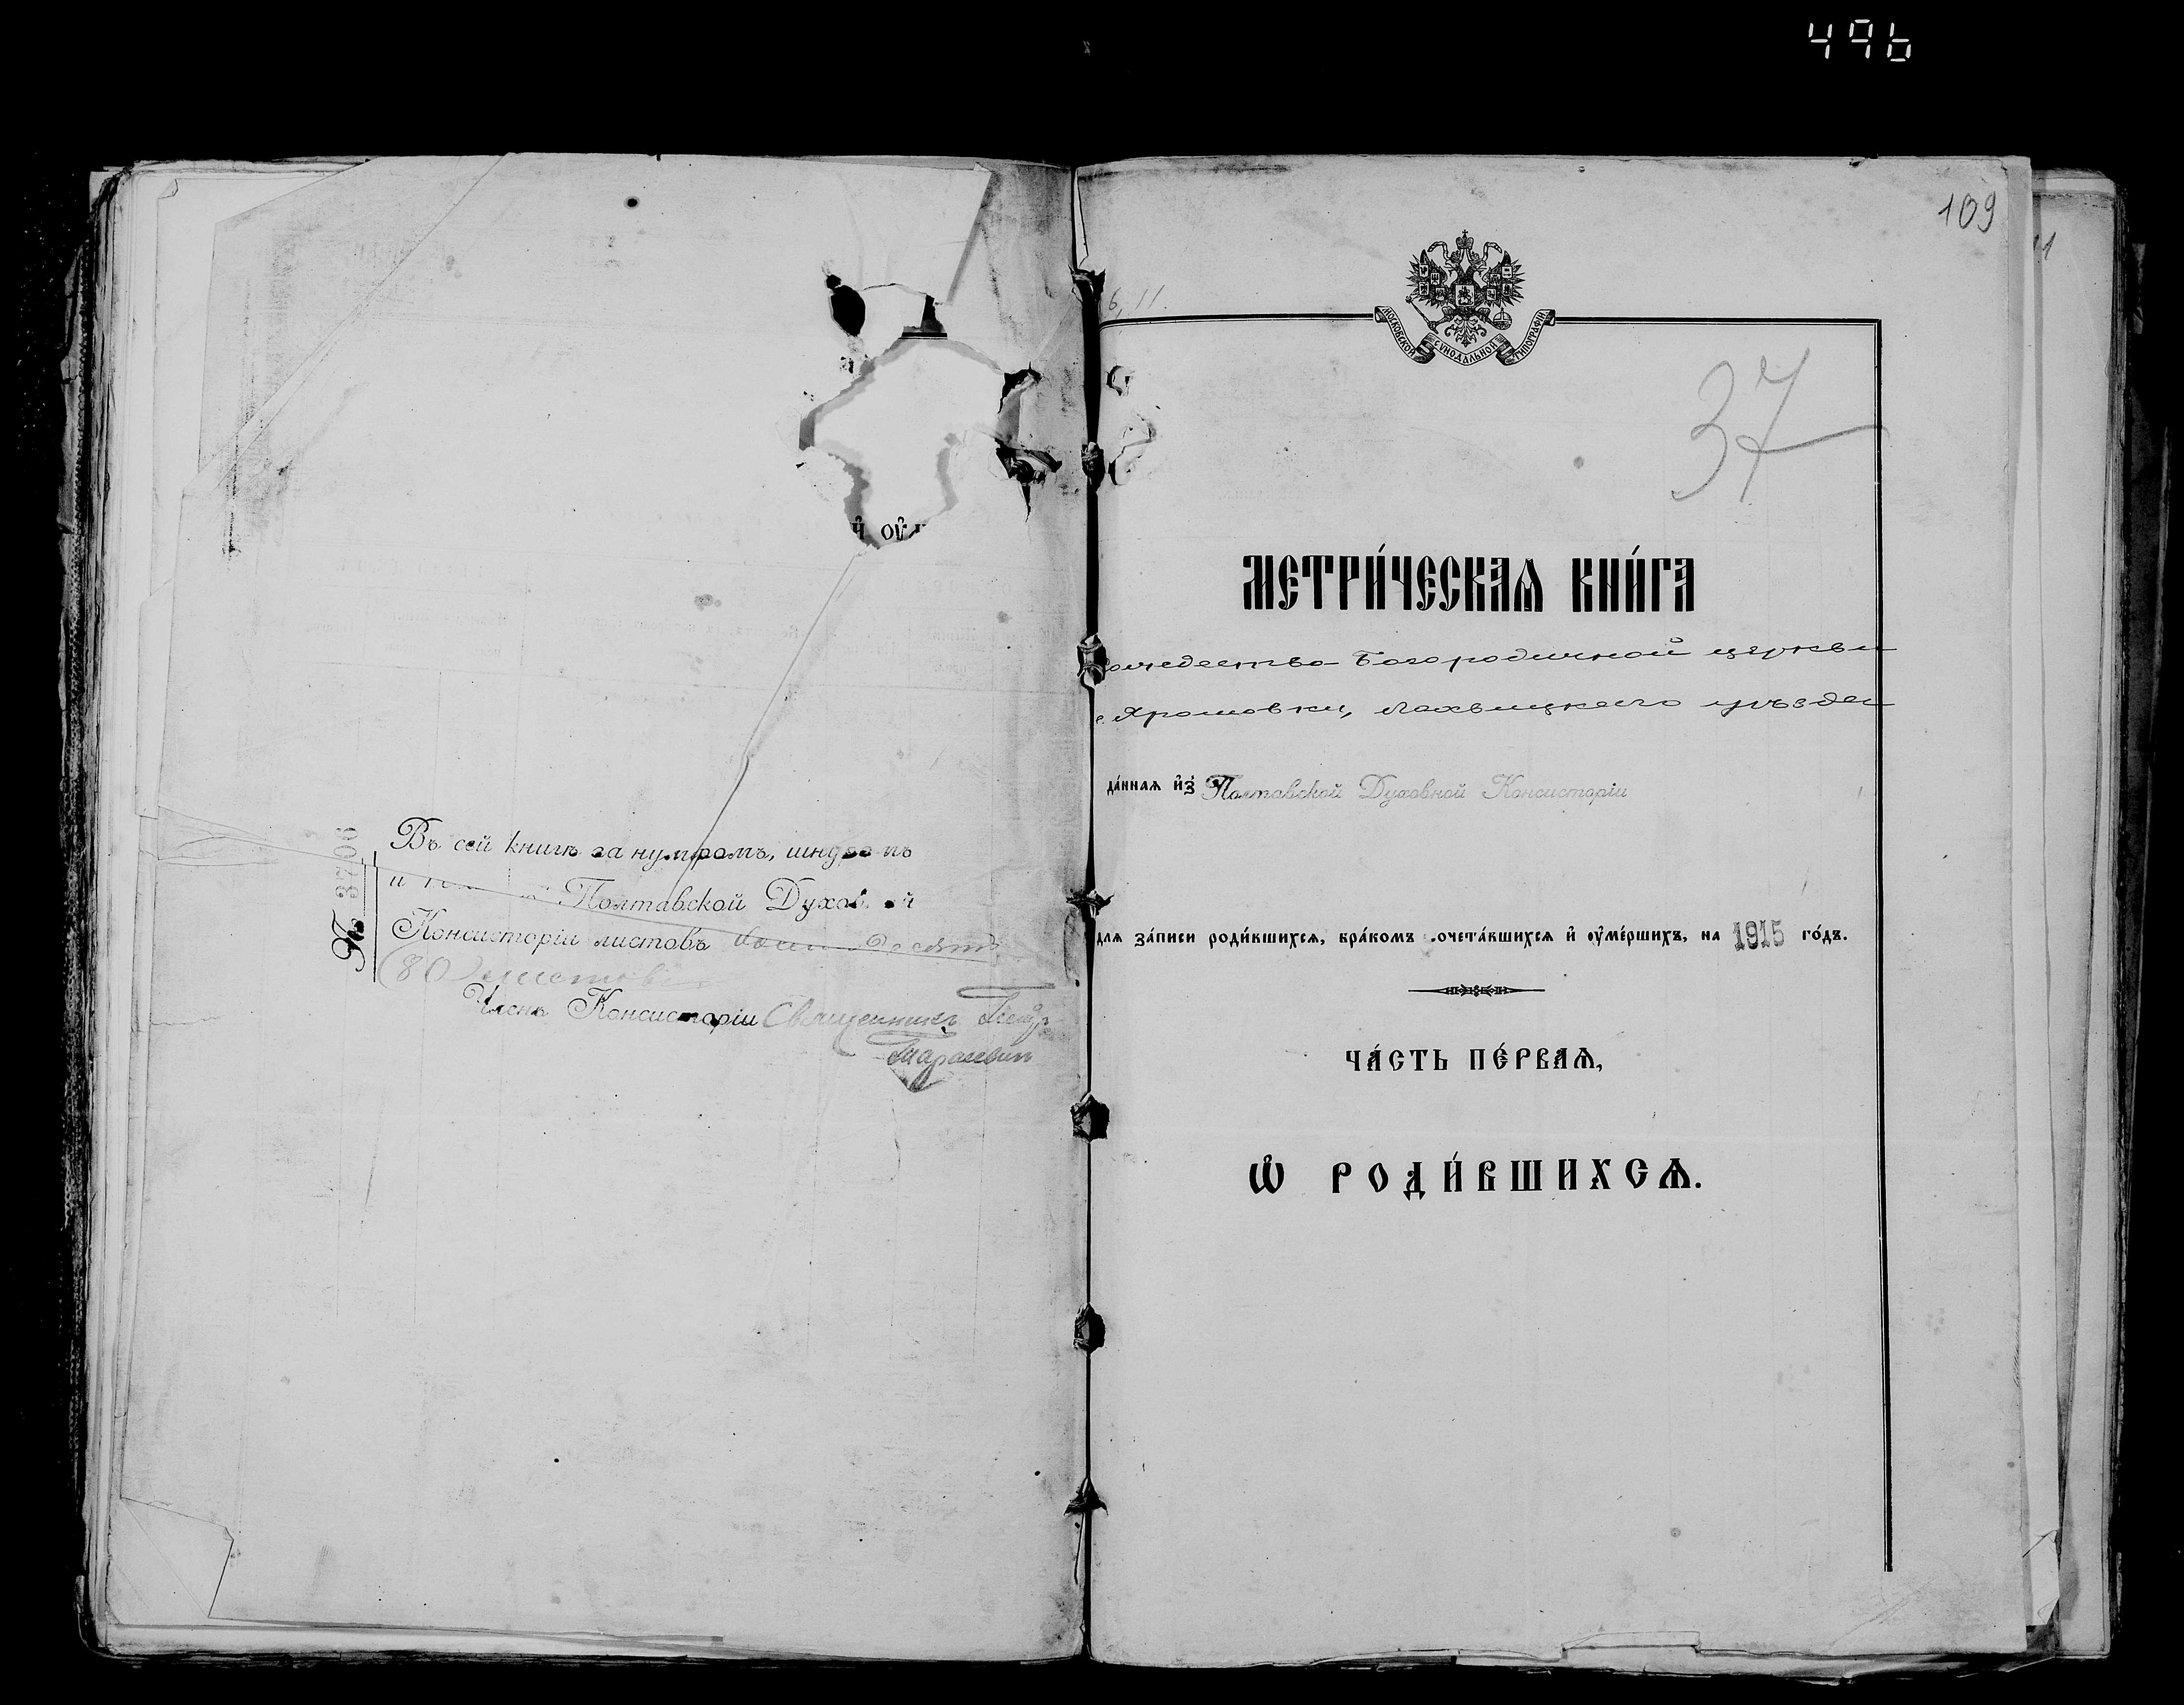 496
й оу
№ 3706
Въ сей книгѣ за нумеромъ, шнуромъ
и Полтавской Духовной
Консисторіи листовъ восемьдесятъ
(80) листовъ
Членъ Консисторіи Священникъ Петръ
109
11
6, 11.
МОСКОВСКОЙ СѴНОДАЛЬНОЙ ТИПОГРАФІИ
37
МЕТРИ́ЧЕСКАѦ КНИ́ГА
Рождество-Богородичной церкви
с. Ярошовки, Лохвицкаго уѣзда
да́нная и҆з̾ Полтавской Духовной Консисторіи
для за́писи роди́вшихся, бра́комъ сочета́вшихся и҆ оу҆ме́ршихъ, на 1915 го́дъ.
ЧА́СТЬ ПЕ́РВАѦ,
Ѡ҆ РОДИ́ВШИХСѦ.